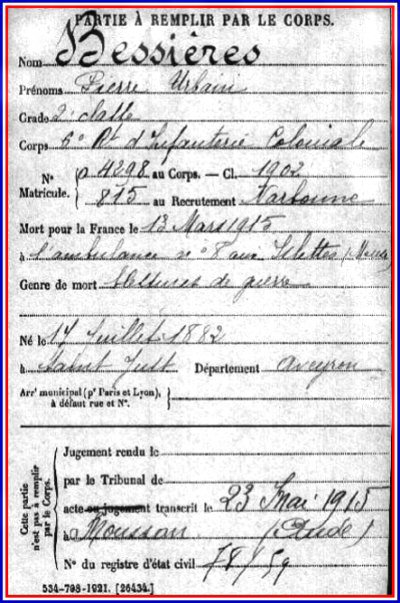 PARTIE À REMPLIR PAR LE CORPS.
Nom Bessières
Prénoms Pierre Urbain
Grade 2e classe
Corps 6e Rt d'Infanterie Coloniale
N° 04298 au Corps. — Cl. 1902
Matricule. 815 au Recrutement Narbonne
Mort pour la France le 13 Mars 1915
à l'ambulance n° 8 aux Islettes (Meuse)
Genre de mort Blessures de guerre
Né le 17 Juillet 1882
à Saint Just Département Aveyron
Arrt municipal (pr Paris et Lyon),
à défaut rue et N°.
Cette partie
n'est pas à remplir
par le Corps.
Jugement rendu le
par le Tribunal de
acte ou jugement transcrit le 23 Mai 1915
à Moussan (Aude)
N° du registre d'état civil 78/59
534-708-1921. [26434.]